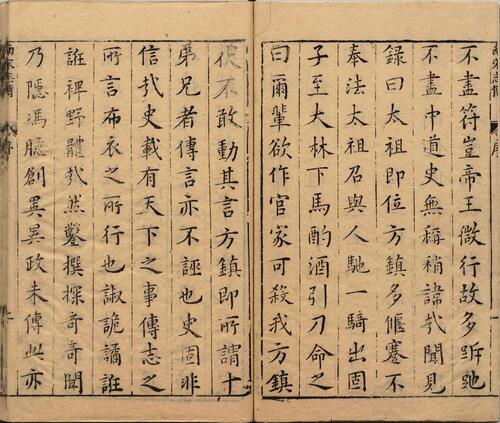 不盡符豈帝王微行故多跅弛
不盡中道史無稱稍諱哉聞見
錄曰太祖即位方鎮多偃蹇不
奉法太祖召與人馳一騎出固
子至大林下馬酌酒引刀命之
曰爾輩欲作官家可殺我方鎮
伏不敢動其言方鎮即所謂十
弟兄者傳言亦不誣也史固非
信哉史載有天下之事傳志之
所言布衣之所行也詼詭譎誑
誑裨野體哉然鑿撰探奇奇聞
乃隱馮臆創異吳政未傳此亦